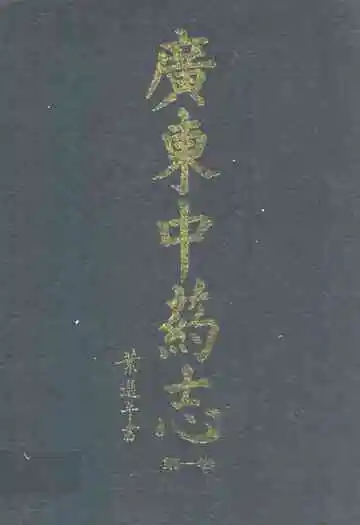 廣東中药志
葉選平書
第一卷